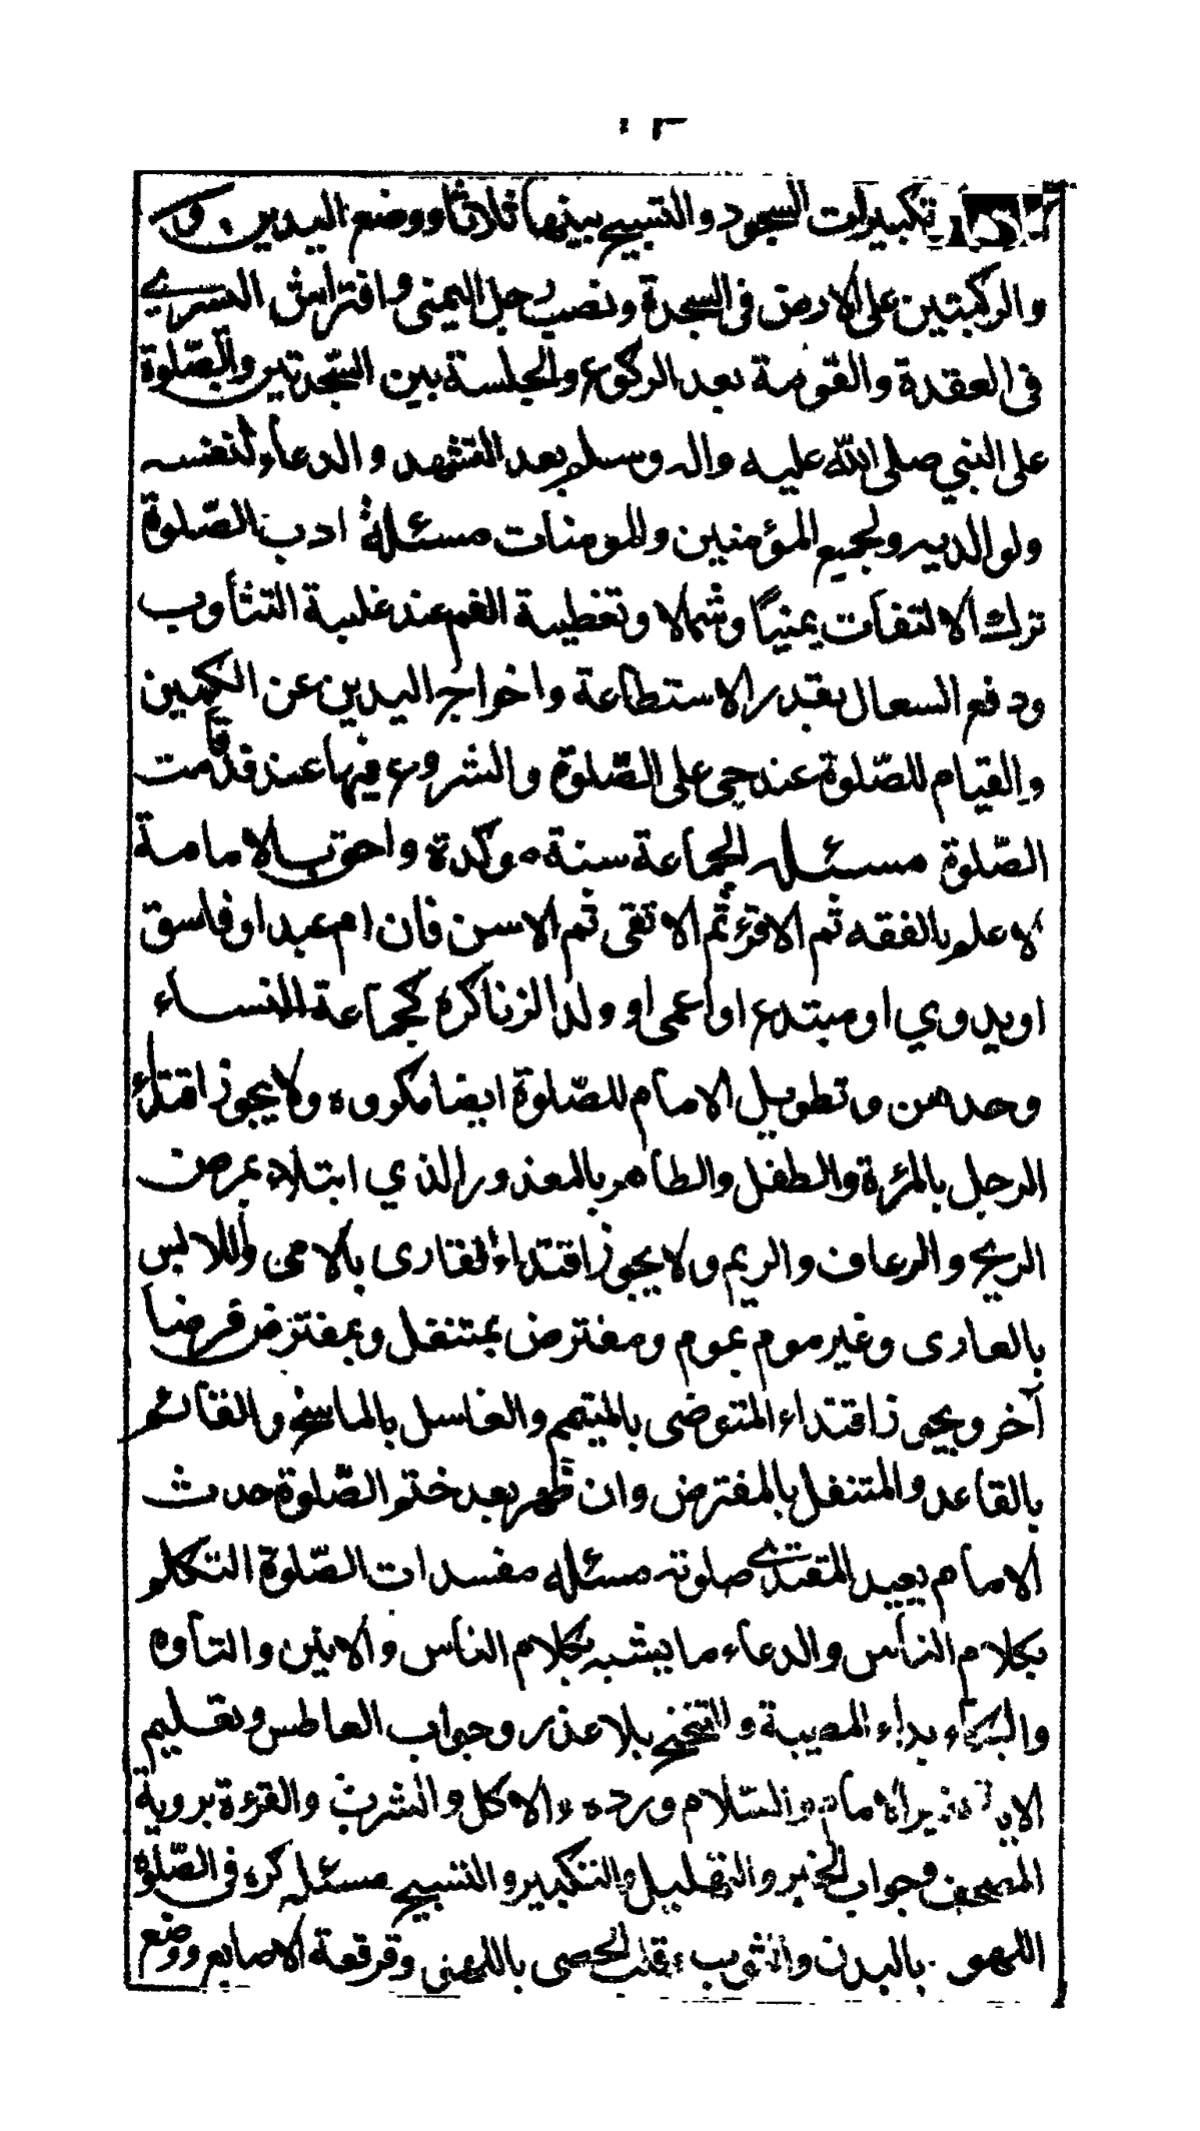 تكبيرات السجود والتسبيح بينها ثلاثا ووضع اليدين
والركبتين على الارض فى السجدة ونصب رجل اليمنى وافتراش اليسرے
فى العقدة والقومة بعد الركوع والجلسة بين السّجدتين والصّلوة
على النبي صلى الله عليه واله وسلم بعد التشهد والدعاء لنفسه
ولوالديه ولجميع المؤمنين والمومنات مسئلة ادب الصّلوة
ترك الالتفات يمنيًا وشمالا وتغطية الفم عند غلبة التثأوب
ودفع السعال بقدر الاستطاعة واخراج اليدين عن الكمين
والقيام للصّلوة عند حى على الصّلوة والشروع فيها عند قد قامت
الصّلوة مسئله الجماعة سنة موكدة واحق بالامامة
لاعلم بالفقه ثم الاقرء ثم الاتقى ثم الاسن فان ام عبد او فاسق
او بدوي او مبتدع او اعمى او ولد الزنا كره كجماعة النساء
وحدهن وتطويل الامام للصّلوة ايضا مكروه ولا يجوز اقتداء
الرجل بالمرءة والطفل والطاهر بالمعذور الذي ابتلاه بمرض
الريح والرعاف والريم ولا يجوز اقتداء القارى بالامى واللابس
بالعارى وغير موم بموم ومفترض بمتنفل وبمفترض فرضا
آخر ويجوز اقتداء المتوضى بالمتيمم والغاسل بالماسح والقائم
بالقاعد والمتنفل بالمفترض وان ظهر بعد ختم الصّلوة حدث
الامام يعيد المقتدے صلوته مسئله مفسدات الصّلوة التكلم
بكلام الناس والدعاء ما يشبه بكلام الناس والانين والتأوه
والبكاء بداء المصيبة والتنحنح بلا عذر وجواب العاطس وتعليم
الامام والسّلام ورده والاكل والشرب والقرءة بروية
المصحف وجواب الخبر والتهليل والتكبير والتسبيح مسئله كره فى الصّلوة
اللهو بالبدن والثوب وقلب الحصى باللهنى وقرقعة الاصابع ووضع